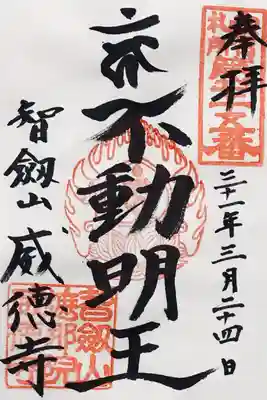 奉拝
二十一年三月二十四日
赤不動明王
智劔山威徳寺